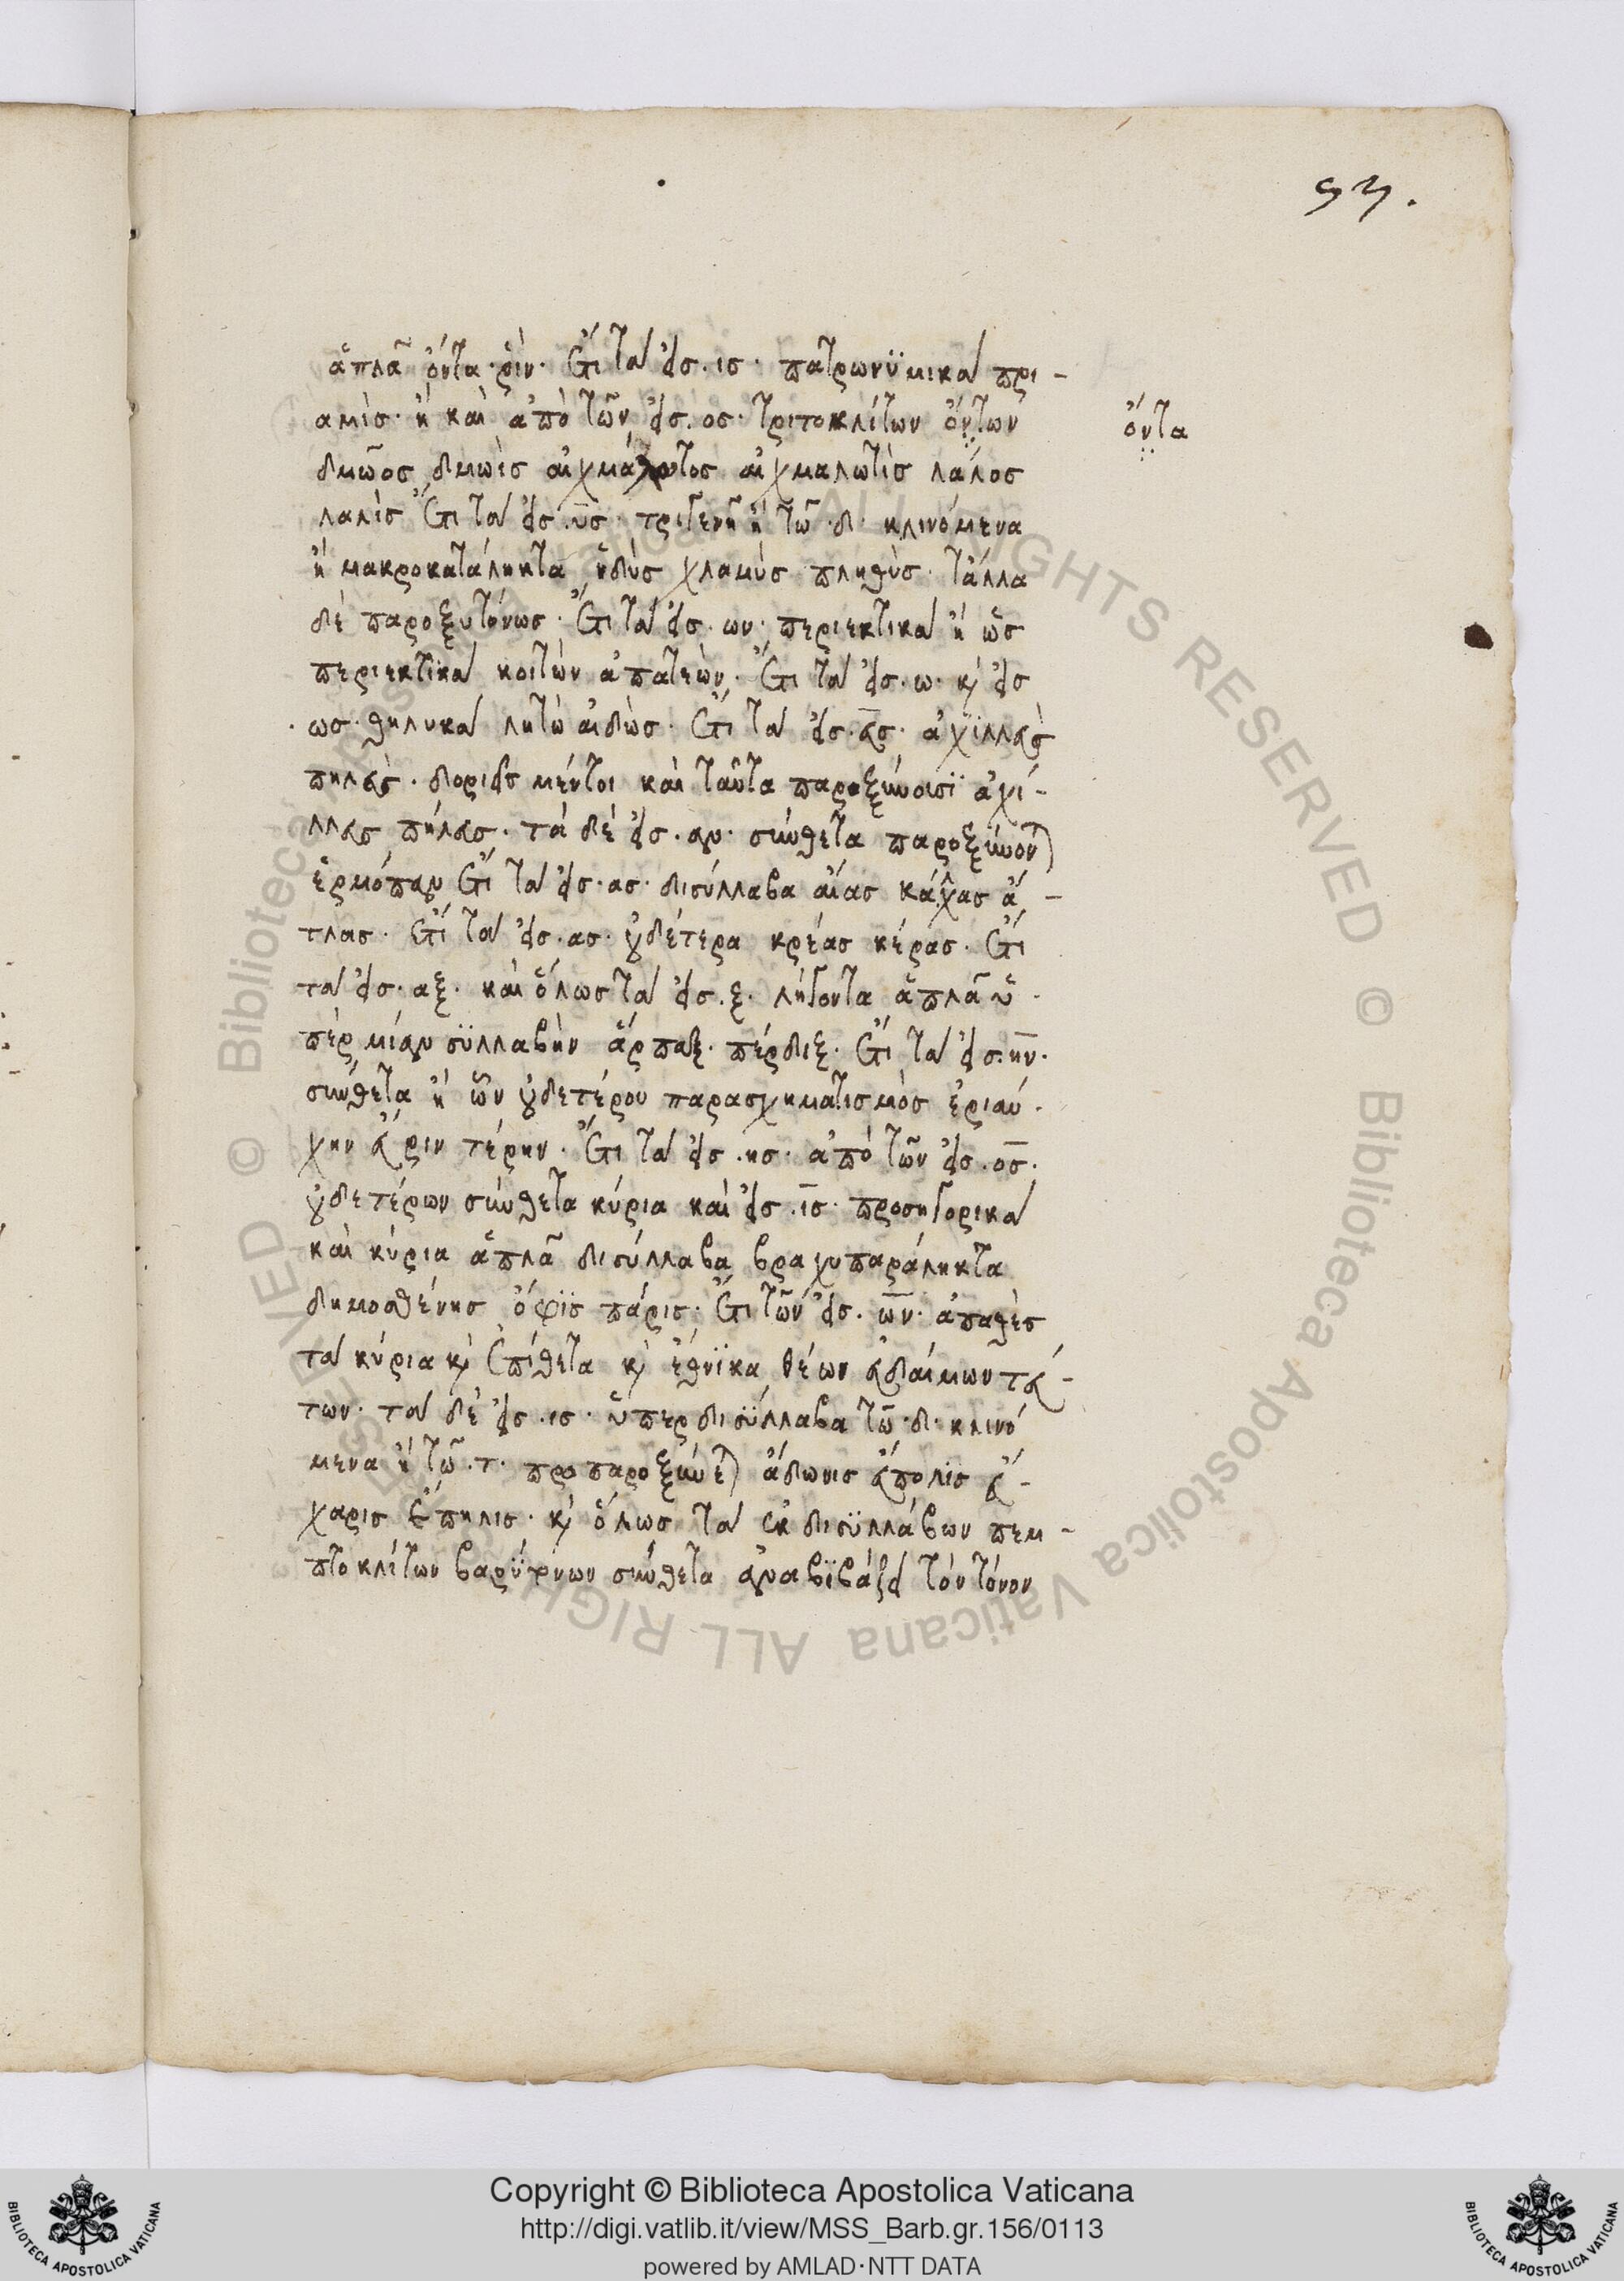 93.
ἁπλᾶ ὄντα ῥίν· Ἔτι τὰ εἰς ις πατρωνϋμικὰ πρι-
αμίς· ἢ καὶ ἀπὸ τῶν εἰς ος τριτοκλίτων ὄντων
ὄντα
δμῶος δμωῒς αἰχμάλωτος αἰχμαλωτὶς λάλος
λαλὶς Ἔτι τὰ εἰς υς τριγενῆ ἢ τῶ δ κλινόμενα
ἢ μακροκατάληκτα ἡδὺς χλαμὺς πληθὺς τἄλλα
δὲ παροξυτόνως· Ἔτι τὰ εἰς ων περιεκτικὰ ἢ ὡς
περιεκτικὰ κοιτὼν ἀπατεὼν· Ἔτι τὰ εἰς ω κ εἰς
ως θηλυκὰ λητὼ αἰδὼς· Ἔτι τὰ εἰς ευς ἀχιλλεὺς
πηλεὺς· δοριεῖς μέντοι καὶ ταῦτα παροξύνουσϊ ἀχί-
λλευς πήλευς· τὰ δὲ εἰς αν σύνθετα παροξύνονται
ἑρμόπαν Ἔτι τὰ εἰς ας δισύλλαβα αἴας κάλχας ἄ-
τλας· Ἔτι τὰ εἰς ας οὐδέτερα κρέας κέρας· Ἔτι
τὰ εἰς αξ· καὶ ὅλως τὰ εἰς ξ λήγοντα ἁπλᾶ ὑ-
πὲρ μίαν σϋλλαβὴν ἅρπαξ· πέρδιξ· Ἔτι τὰ εἰς ην·
σύνθετα ἢ ὧν οὐδετέρου παρασχηματισμὸς ἐριαύ-
χην εὔριν τέρην· Ἔτι τὰ εἰς ης ἀπὸ τῶν εἰς ος·
οὐδετέρων σύνθετα κύρια καὶ εἰς ις προσηγορικὰ
καὶ κύρια ἁπλᾶ δισύλλαβα βραχυπαράληκτα
δημοσθένης ὄφις πάρις· Ἔτι τῶν εἰς ων· ἀπαθὲς
τὰ κύρια κ ἐπίθετα κ ἐθνϊκὰ θέων εὐδαίμων τεύ-
των· τὰ δὲ εἰς ις ὑπερδισϋλλαβα τῶ δ κλινό
μενα ἢ τῶ τ προπαροξύνεται ἄδωνις εὔπολις εὔ-
χαρις ἔπηλις· κ ὅλως τὰ ἐκ δισϋλλάβων πεμ-
πτοκλίτων βαρϋτόνων σύνθετα ἀναβϊβάζει τὸν τόνον
Copyright © Biblioteca Apostolica Vaticana
http://digi.vatlib.it/view/MSS_Barb.gr.156/0113
powered by AMLAD·NTT DATA